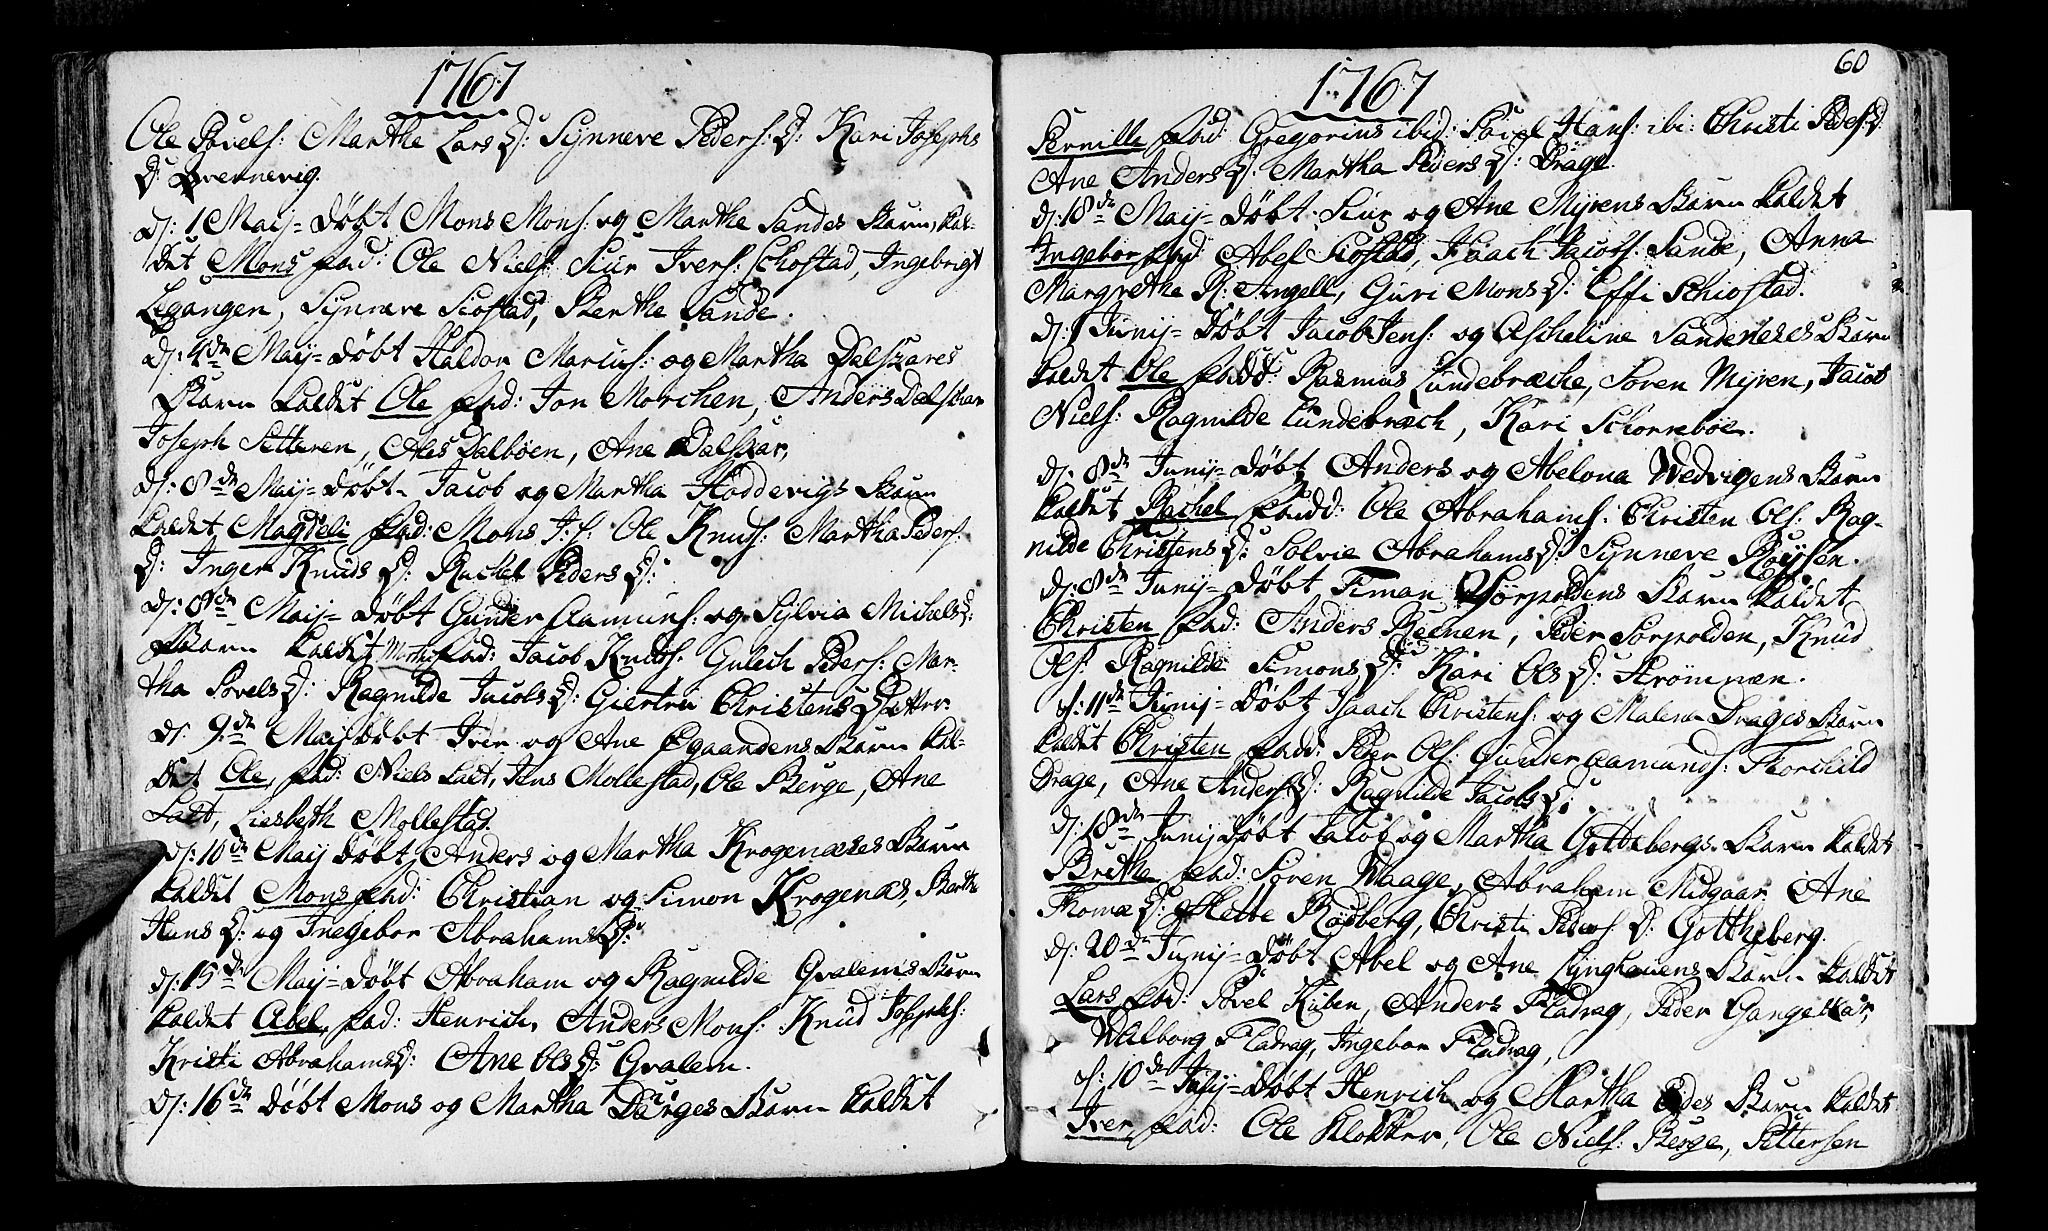 1767
Ole Povels: Marthe Lars D: Synneve Peders: D: Kari Josephs
D: Brennevig.
D: 1 Maij = Døbt Mons Mons: og Marthe Sandes Barn, kal-
det Mons fad: Ole Niels: Siur Ivers: Schostad, Ingebrigt
Legangen, Synneve Siøstad, Berthe Sande.
D: 4de Maij = døbt Haldor Marius: og Martha Dalskares
Barn kaldet Ole fad: Jon Morchen, Anders Dalskar
Joseph Setteren, Ales Dalbøen, Ane Dalskar,
D: 8de Maij = døbt Jacob og Martha Høddevigs Barn
kaldet Magdeli fad: Mons J: S: Ole Knuts: Martha Peders:
D: Inger Knuds D: Rachel Peders D:
D: 8de Maij = døbt Gunder Aamuns: og Sylvia Michels D:
Barn kaldet fad: Jacob Knuds: Gulech Peders: Mar-
tha Povels D: Ragnilde Jacobs D: Giertru Christens D:
D: 9de Maij døbt Iver og Ane Egaandens Barn kal-
det Ole, fad: Niels Laet, Jens Mollestad, Ole Berge, Ane
Laet, Liesbeth Mollestad.
D: 10de Maij døbt Anders og Martha Krogenæses Barn
kaldet Mons fad: Christian og Simon Krogenæs, Barthe
Hans D: og Ingebor Abrahams D:
D: 15de Maij = døbt Abraham og Ragnilde Qvalems Barn
kaldet Abel, fad: Henrich, Anders Mons: Knud Josephs:
Kristi Abrahams D: Ane Ols D: Qvalem.
D: 16de døbt Mons og Martha Barn kaldet
60
1767
Pernille fad: Gregorius ibid: Povel Hans: ibi: Christi Peders: D:
Ane Anders D: Martha Peders D: Drage.
D: 18de Maij = døbt Siur og Ane Myrens Barn kaldet
Ingebor fad: Abel Siøstad, Isaach Jacobs: Sande, Anna
Margrethe R: Angell, Guri Mons D: Effi Schiostad.
D: 1 Junij = døbt Jacob Jens: og Ascheline Sandeneses Barn
kaldet Ole fadd: Rasmus Lundebræche, Søren Myren, Jacob
Niels: Ragnilde Lundebræch, Kari Schorrebøe.
D: 8de Junij = døbt Anders og Abelona Wedvigens Barn
kaldet Rachel fadd: Ole Abrahams: Christen Ols: Rag-
nilde Christens D: Solvie Abrahams D: Synneve Røysen.
D: 8de Junij = døbt Siman Sørpoldens Barn kaldet
Christen fad: Anders Reenen, Peder Sørpolden, Knud
Ols: Ragnilde Simons D: Kari Ols D: Strømmen.
D: 11de Junij = døbt Isaach Christens: og Malena Drages Barn
kaldet Christen fadd: Peer Ols: Gunder Aamunds: Thorchild
Drage, Ane Anders D: Ragnilde Jacobs D:
D: 18de Junij døbt Jacob og Martha Gottebergs Barn kaldet
Brithe fad: Søren Waage, Abraham Midgaar Ane
Thomæ D: Rødberg, Christi Peders D: Gottheberg.
D: 20de Junij = døbt Abel og Ane Lynghauens Barn kaldet
Lars fad: Povel Kuben, Anders Fladrag, Peder Gangeskar,
Walborg Fladrag, Ingebor Fladrag,
D: 10de Julij = døbt Henrich og Martha Eides Barn kaldet
Iver, fad: Ole Klokker, Ole Niels: Berge, Pettersen